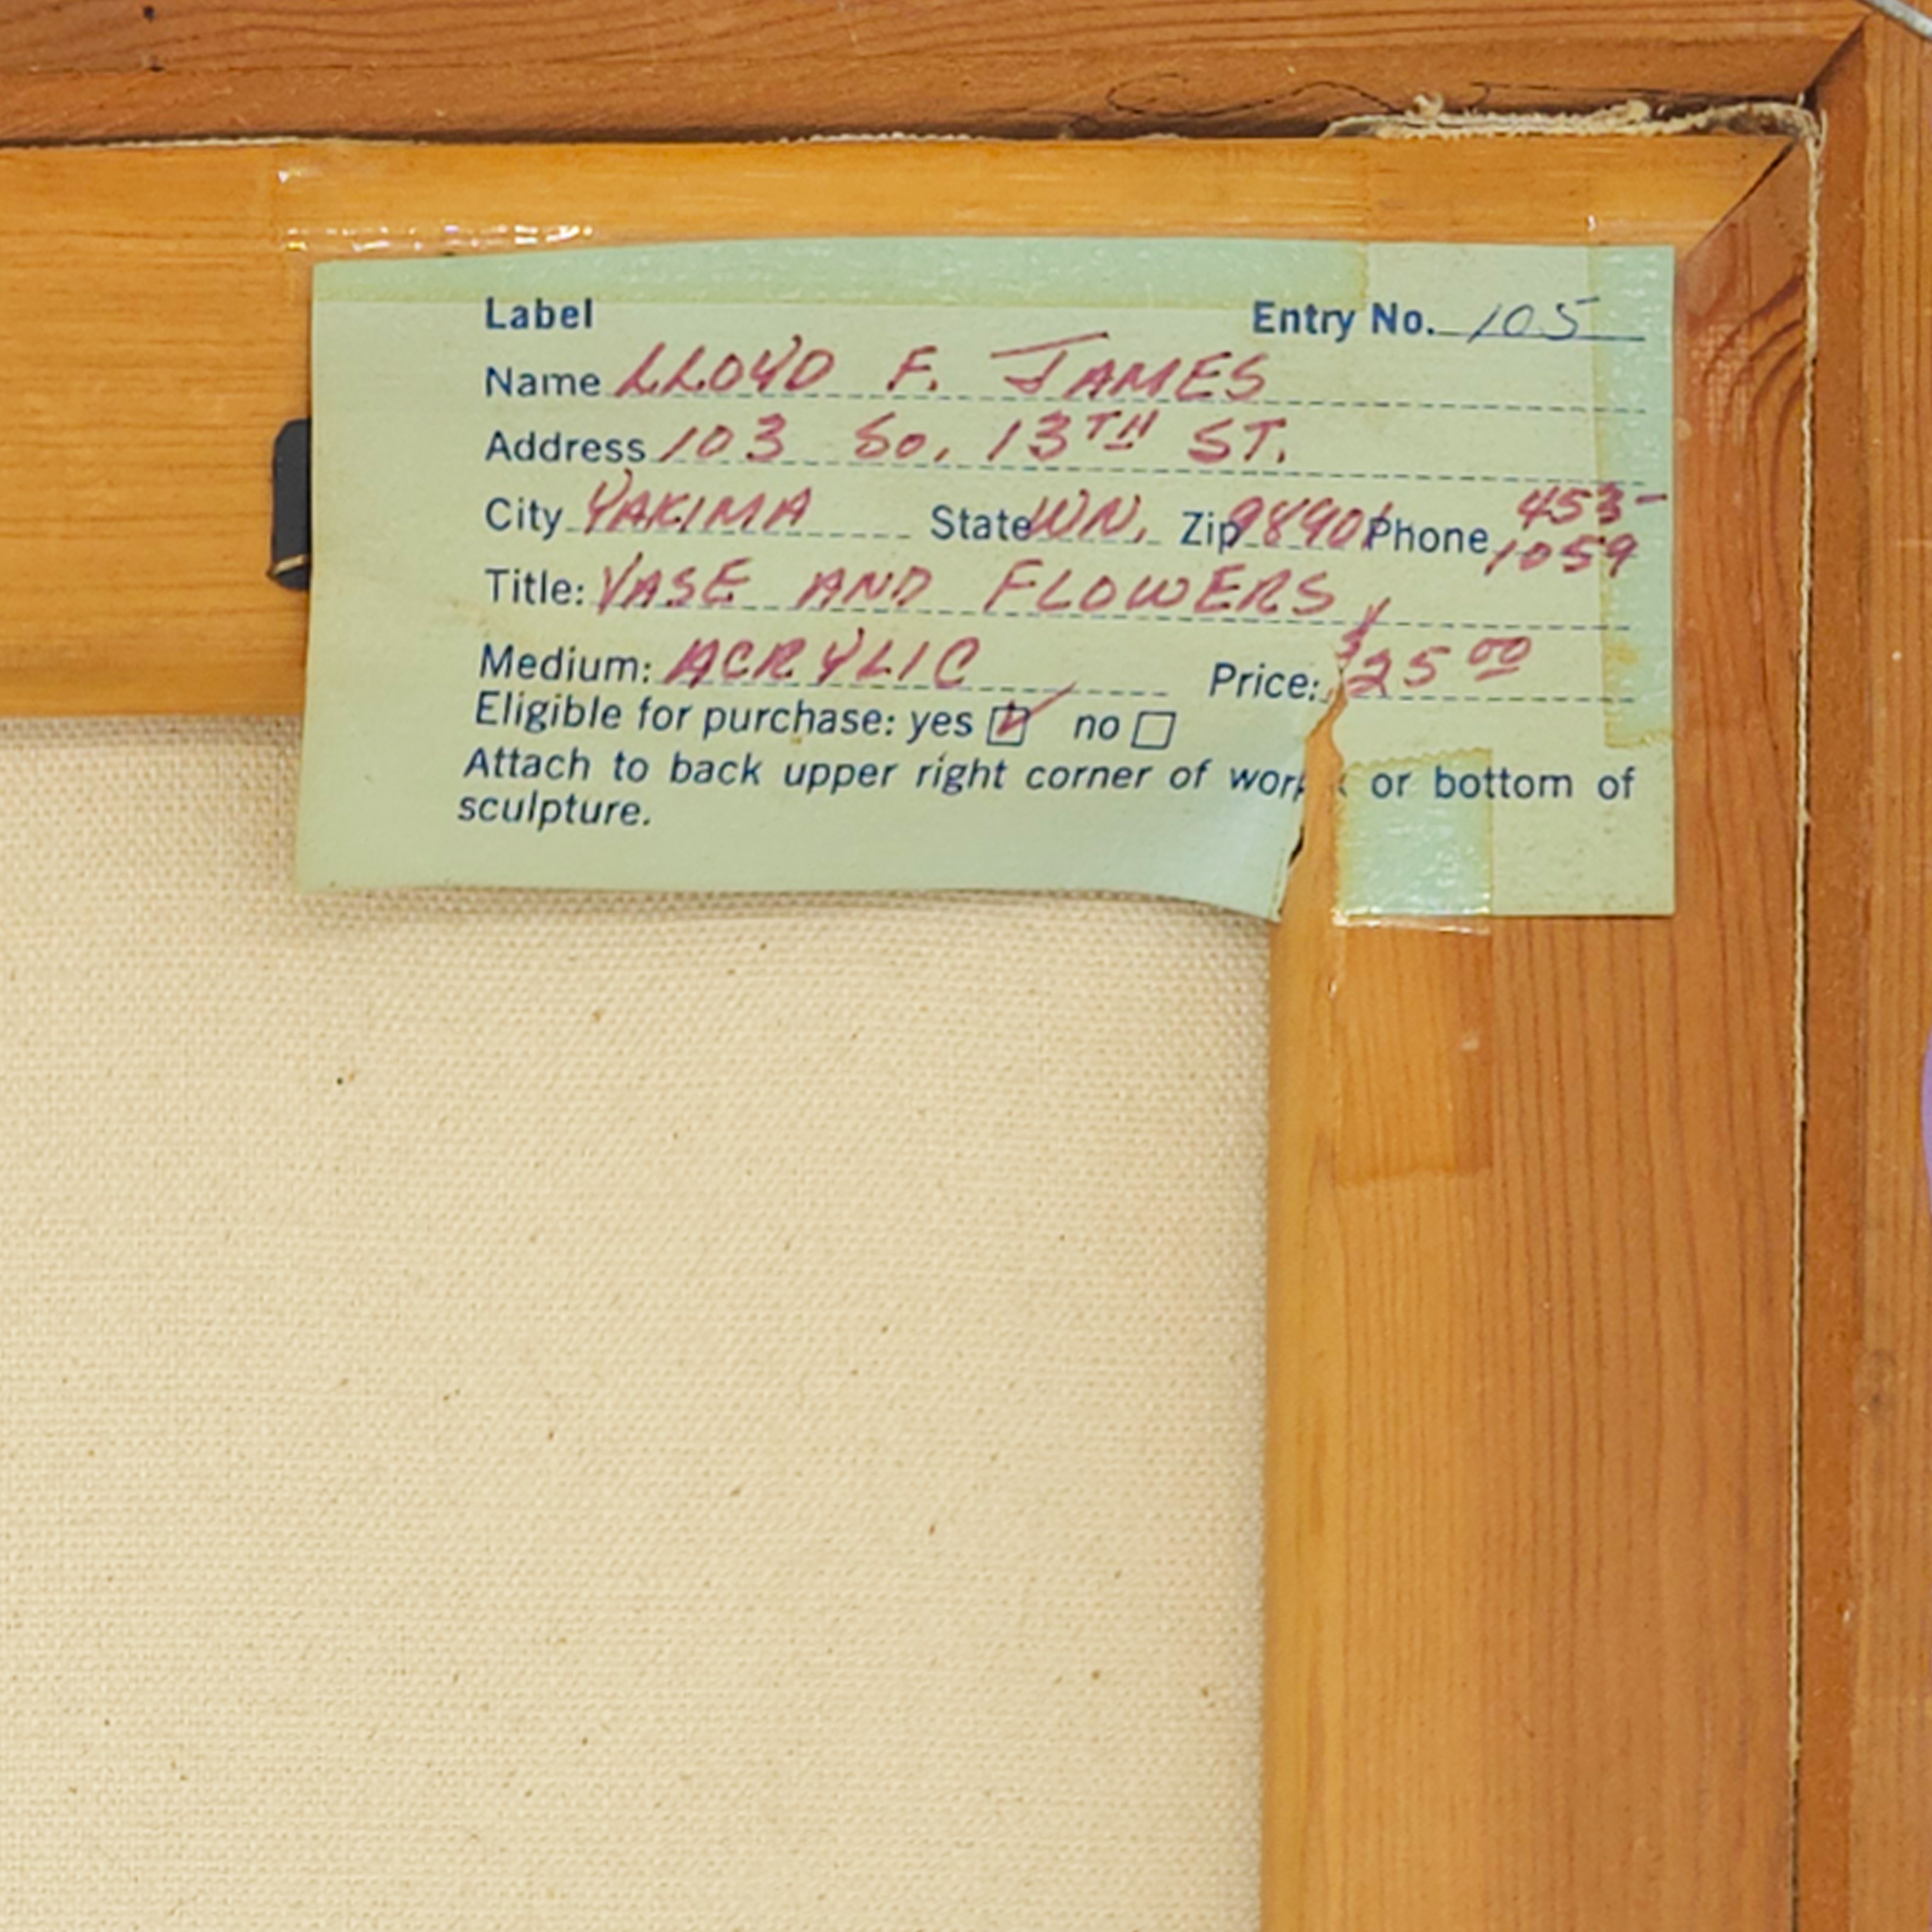 Label Entry No. 105
Name LLOYD F. JAMES
Address 103 So. 13TH ST.
City YAKIMA State WN. Zip 98901 Phone 453-
1059
Title: VASE AND FLOWERS
Medium: ACRYLIC Price: $25 00
Eligible for purchase: yes ☑ no ☐
Attach to back upper right corner of work or bottom of
sculpture.